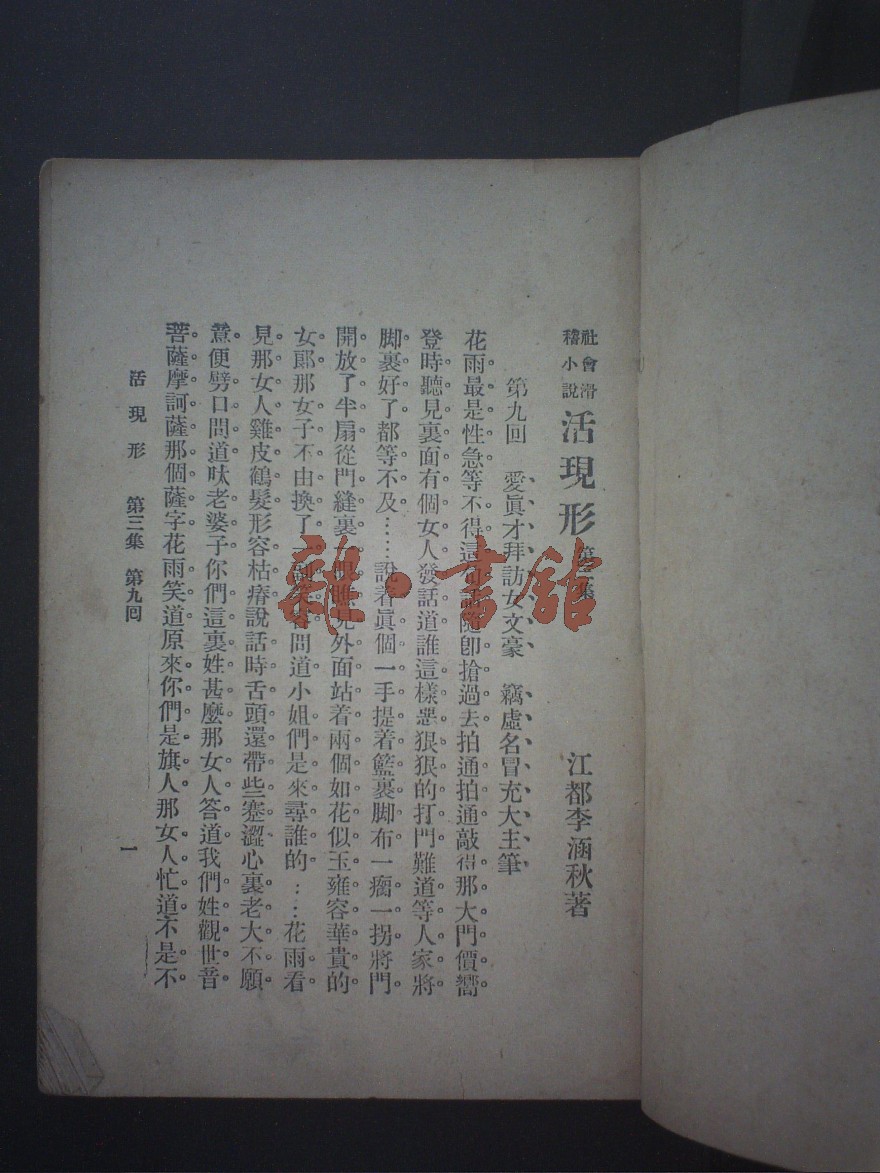 社會滑稽小說 活現形 第三集
江都李涵秋著
第九回 愛眞才拜訪女文豪 竊虛名冒充大主筆
花雨最是性急等不得這句話隨卽搶過去拍通拍通敲得那大門價嚮
登時聽見裏面有個女人發話道誰這樣惡狠狠的打門難道等人家將
脚裹好了都等不及……說着眞個一手提着籃裹脚布一瘸一拐將門
開放了半扇從門縫裏一眼瞧見外面站着兩個如花似玉雍容華貴的
女郞那女子不由換了一副笑容問道小姐們是來尋誰的……花雨看
見那女人雞皮鶴髮形容枯瘠說話時舌頭還帶些蹇澀心裏老大不願
意便劈口問道呔老婆子你們這裏姓甚麼那女人答道我們姓觀世音
菩薩摩訶薩那個薩字花雨笑道原來你們是旗人那女人忙道不是不
活現形 第三集 第九回
一
雜·書舘